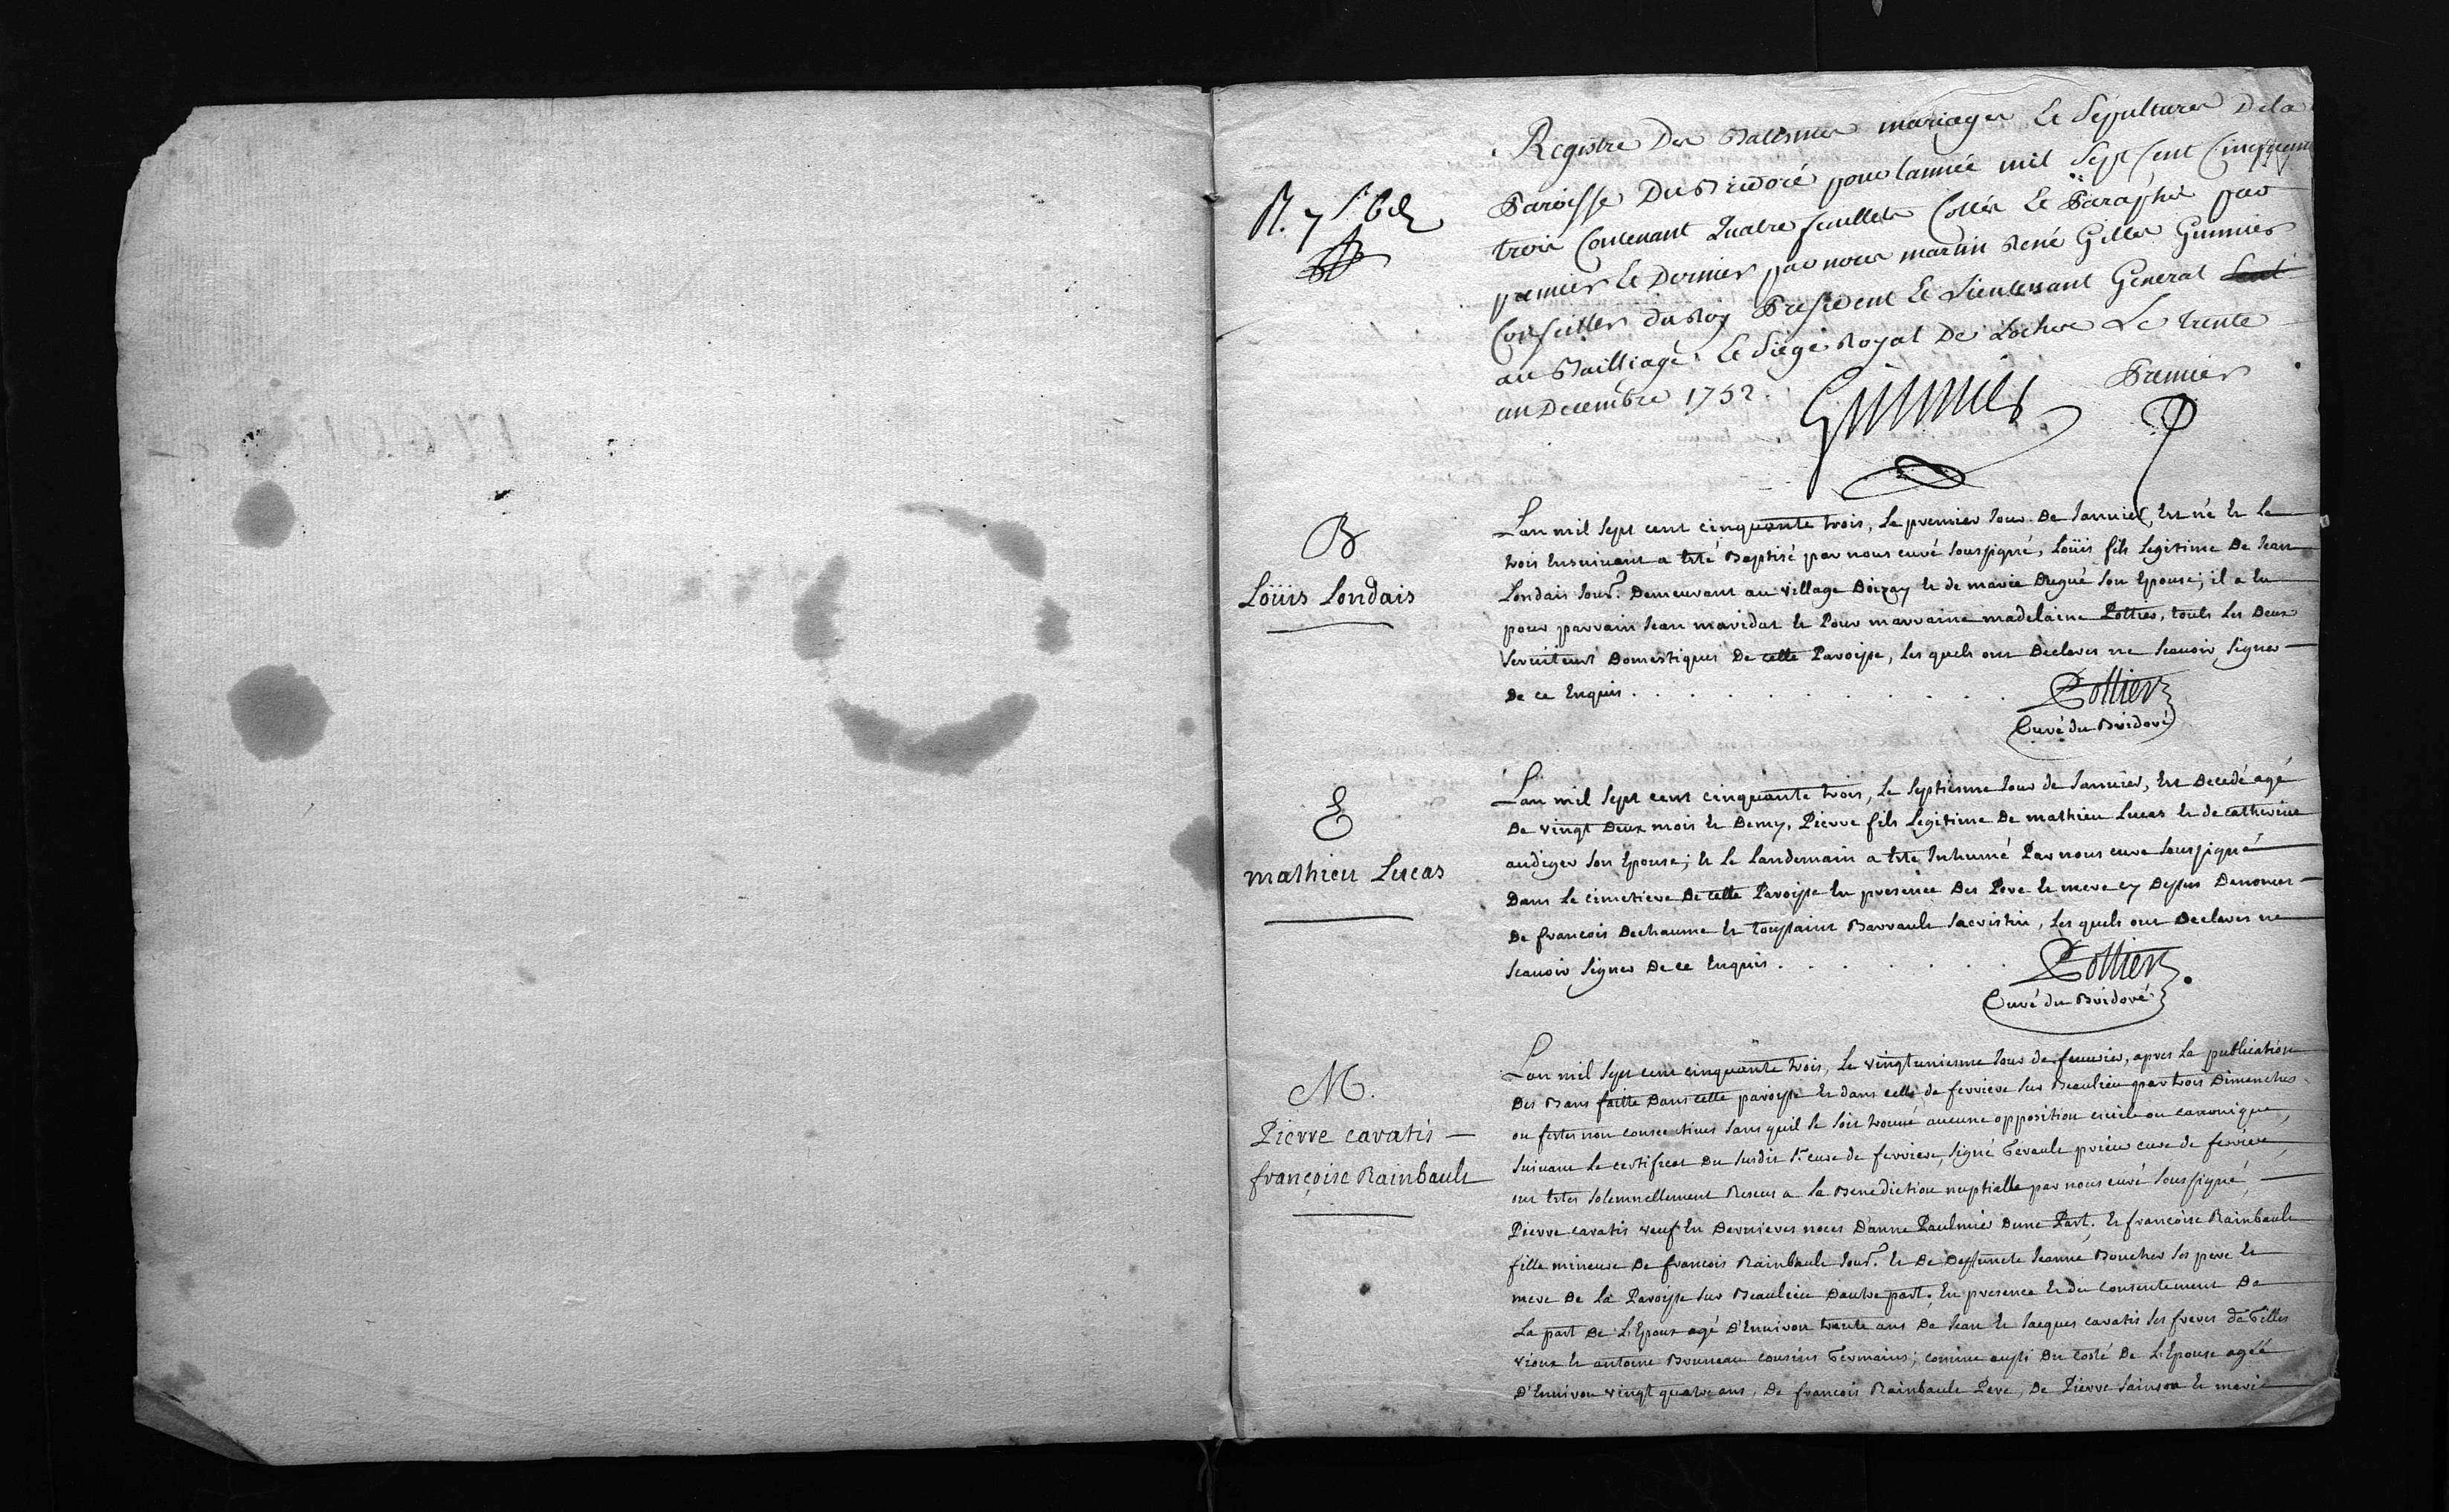 Registre Des Batêsmes mariages Et Sépultures Dela
Paroisse Du Bridoré pour lannée mil Sept Cent Cinquante
trois Contenant Quatre feuillets Cottés Et Paraphés par
premier Et Dernier par nous martin René Gilles Guimier
Conseiller du Roy President Et Lieutenant General
au Bailliage Et Siege Royal De Loches Le trente
un Decembre 1752.
Guimier
Premier
B
Loüis Londais
Lan mil sept cent cinquante trois, le premier Jour De Janvier, Est né Et le
trois Ensuivant a Esté Baptisé par nous curé soussigné, Loüis fils legitime De Jean
Londais Jour.r Demeurant au village Doizay Et de marie Dregué son Epouse; il a Eu
pour parrain Jean maridat Et Pour marraine madelaine Pottier, touts les Deux
serviteurs Domestiques De cette Paroisse, les quels ont Declarer ne scauoir signer
De ce Enquis . . . . . . . . . .
Pottier
Curé du Bridoré
E
mathieu Lucas
Lan mil sept cent cinquante trois, le septiesme Jour de Janvier, Est Decedé agé
De vingt Deux mois Et Demy, Pierre fils legitime De mathieu Lucas Et de catherine
audiger son Epouse; Et le landemain a Esté Inhumé Par nous curé soussigné
Dans le cimetiere De cette Paroisse En presence Des Pere Et mere cy Dessus Denomer
De francois Dechaume Et toussaint Barrault sacristin, les quels ont Declarer ne
scauoir signer De ce Enquis . . . . . . .
Pottier
Curé du Bridoré
M.
Pierre caratis —
françoise Rainbault
Lan mil sept cent cinquante trois, le vingtuniesme Jour de feuurier, apres la publication
Des Bans faitte Dans cette paroisse Et dans celle de ferriere sur Beaulieu par trois Dimenches
ou festes non consecutiues sans quil se soit trouué aucune opposition ciuile ou canonique,
suiuant le certificat Du susdit Sr. curé de ferriere, signé Gerault prieur curé de ferriere,
ont Estes solemnellement Receus a la Benediction nuptialle par nous curé soussigné,
Pierre caratis veuf En Dernieres noces D'anne Paulmier Dune Part. Et francoise Rainbault
fille mineure De francois Rainbault Jour.r Et De Deffuncte Jeanne Boucher ses pere Et
mere De la Paroisse sur Beaulieu Dautre part. En presence Et du consentement De
la part De L'Epoux agé D'Enuiron trente ans De Jean Et Jacques caratis ses freres de Gilles
vioux Et antoine Bruneau cousins Germains; comme aussi Du costé De L'Epouse agée
D'Enuiron vingt quatre ans, De francois Rainbault Pere, De Pierre sainson Et marie